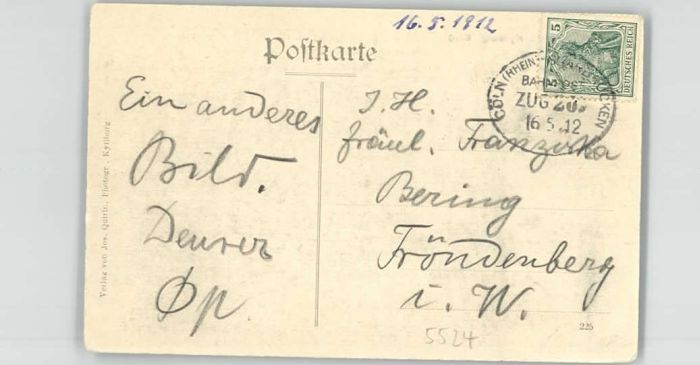 16. 5. 1912
Postkarte
Ein anderes
Bild.
I. H.
Fräul. Franziska
Bering
Fröndenberg
i. W.
5
DEUTSCHES REICH
CÖLN (RHEIN)
BAHNPOST
ZUG
16 5 12
Verlag von Jos. Quirin, Photogr., Kyllburg
225
5524